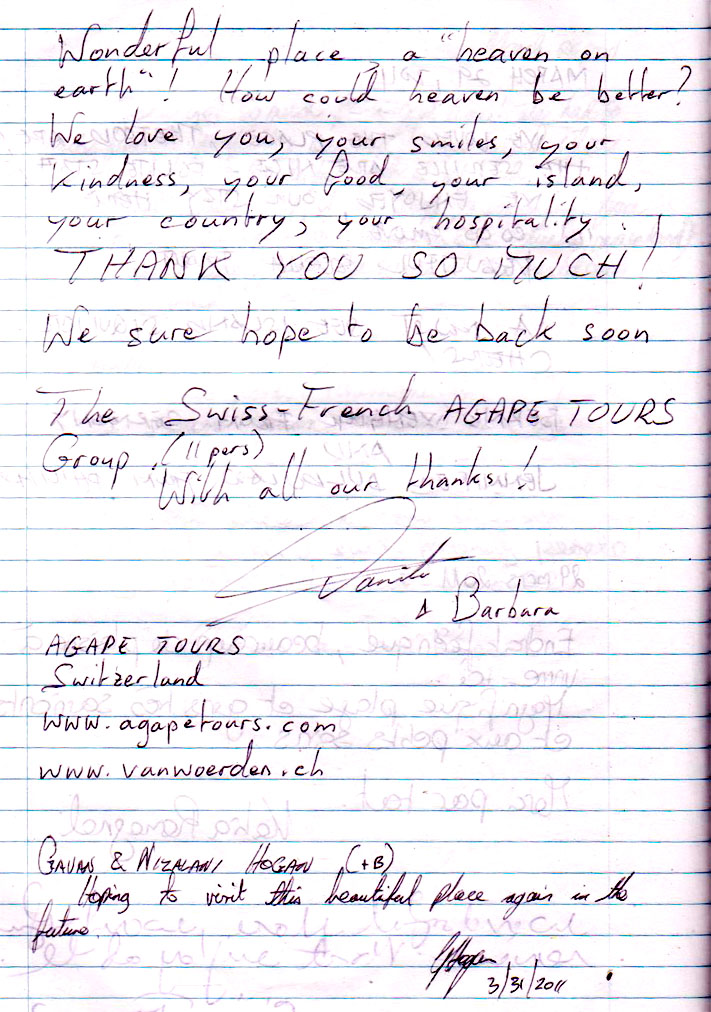 Wonderful place, a "heaven on
earth"! How could heaven be better?
We love you, your smiles, your
kindness, your food, your island,
your country, your hospitality.
THANK YOU SO MUCH!
We sure hope to be back soon
The Swiss-French AGAPE TOURS
Group. (11 pers)
With all our thanks!
Barbara
AGAPE TOURS
Switzerland
www.agapetours.com
www.vanwoerden.ch
GAVAN & NIZALANI HOGAN (+B)
Hoping to visit this beautiful place again in the
future.
GHogan
3/31/2011